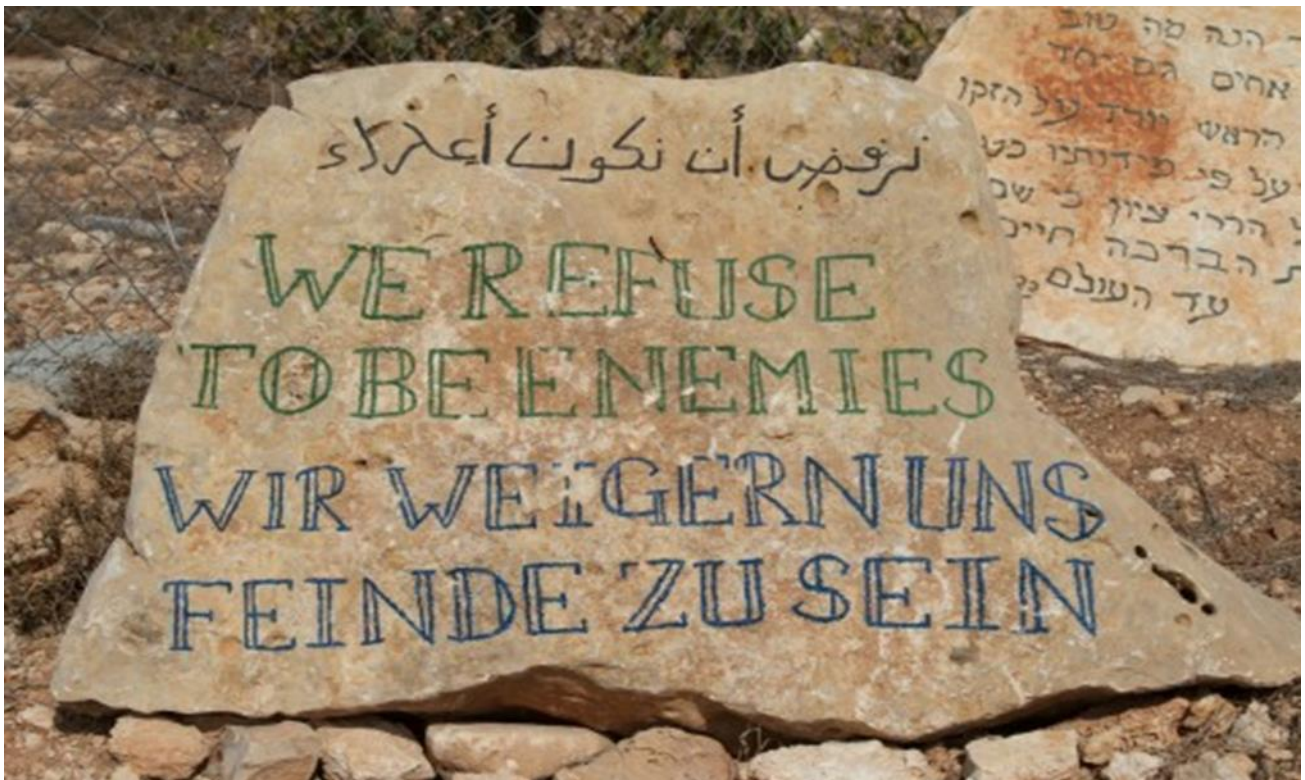 نرفض أن نكون أعداء
WE REFUSE
TO BE ENEMIES
WIR WEIGERN UNS
FEINDE ZU SEIN
הנה מה טוב
אחים גם יחד
הראש יורד על הזקן
על פי מידותיו
הררי ציון כי
הברכה
עד העולם